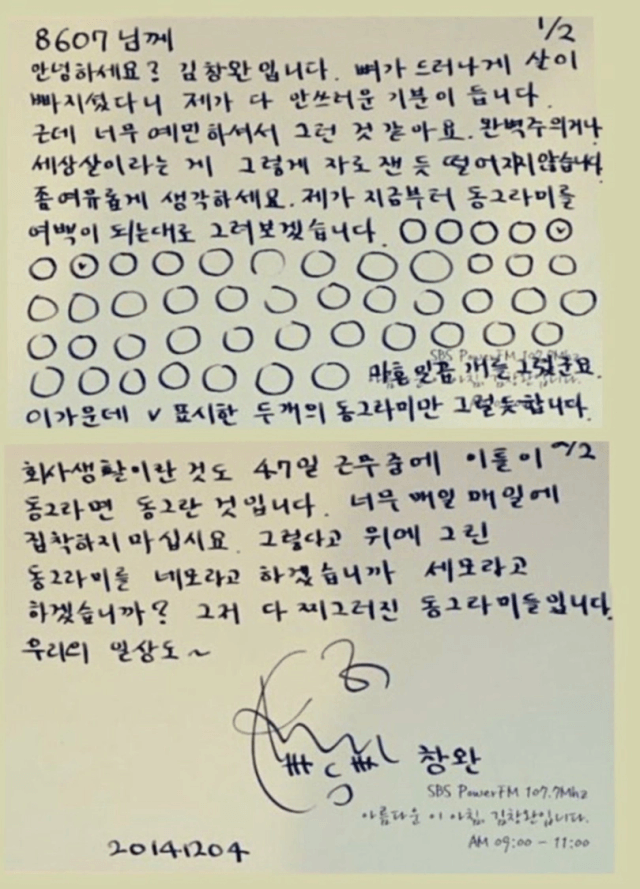 8607님께
1/2
안녕하세요? 김창완입니다. 뼈가 드러나게 살이
빠지셨다니 제가 다 안쓰러운 기분이 듭니다.
근데 너무 예민하셔서 그런 것 같아요. 완벽주의거나
세상살이라는 게 그렇게 자로 잰 듯 떨어지지않습니다
좀여유롭게 생각하세요. 제가 지금부터 동그라미를
여백이 되는대로 그려보겠습니다.
마흔 일곱 개를 그렸군요.
SBS PowerFM 107.7Mhz
이가운데 v 표시한 두개의 동그라미만 그럴듯합니다.
2/2
회사생활이란 것도 47일 근무중에 이틀이
동그라면 동그란 것입니다. 너무 매일 매일에
집착하지 마십시요. 그렇다고 위에 그린
동그라미를 네모라고 하겠습니까 세모라고
하겠습니까? 그저 다 찌그러진 동그라미들입니다.
우리의 일상도~
창완
SBS PowerFM 107.7Mhz
아름다운 이 아침, 김창완입니다.
AM 09:00 - 11:00
20141204